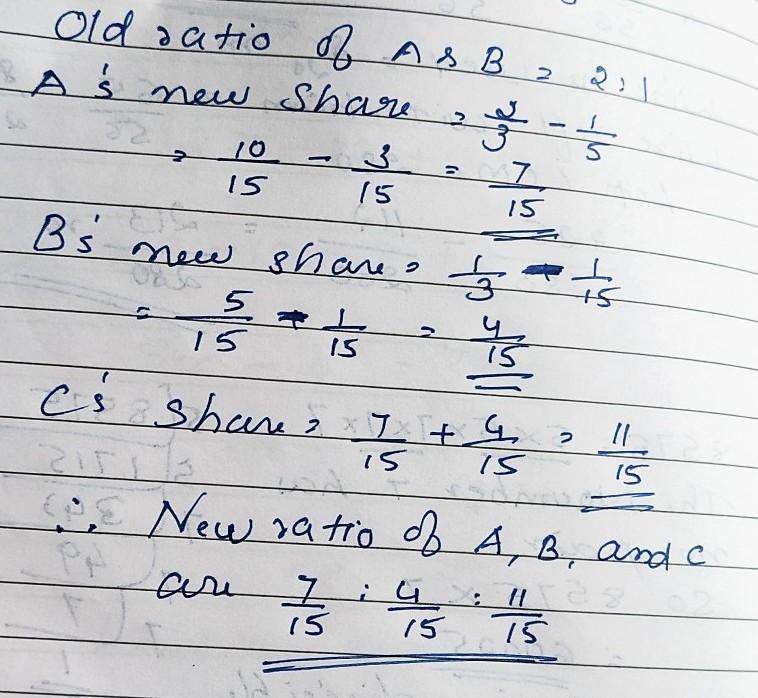 Old ratio of A & B = 2:1
A's new share = 2/3 - 1/5
= 10/15 - 3/15 = 7/15
B's new share = 1/3 - 1/15
= 5/15 - 1/15 = 4/15
C's share = 7/15 + 4/15 = 11/15
∴ New ratio of A, B, and C
are 7/15 : 4/15 : 11/15